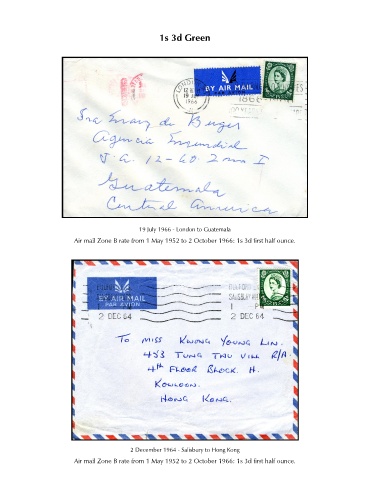 1s 3d Green
BY AIR MAIL
19 JLY
1966
Sra Mary de Burger
Agencia
7 A. 12-60 Zona I
Guatemala
Central America
19 July 1966 - London to Guatemala
Air mail Zone B rate from 1 May 1952 to 2 October 1966: 1s 3d first half ounce.
BY AIR MAIL
PAR AVION
2 DEC 64
SALISBURY
2 DEC 64
TO MISS KWONG YOUNG LIN.
483 TUNG TAU VILL R/A.
4TH FLOOR BLOCK. H.
KOWLOON.
HONG KONG.
2 December 1964 - Salisbury to Hong Kong
Air mail Zone B rate from 1 May 1952 to 2 October 1966: 1s 3d first half ounce.